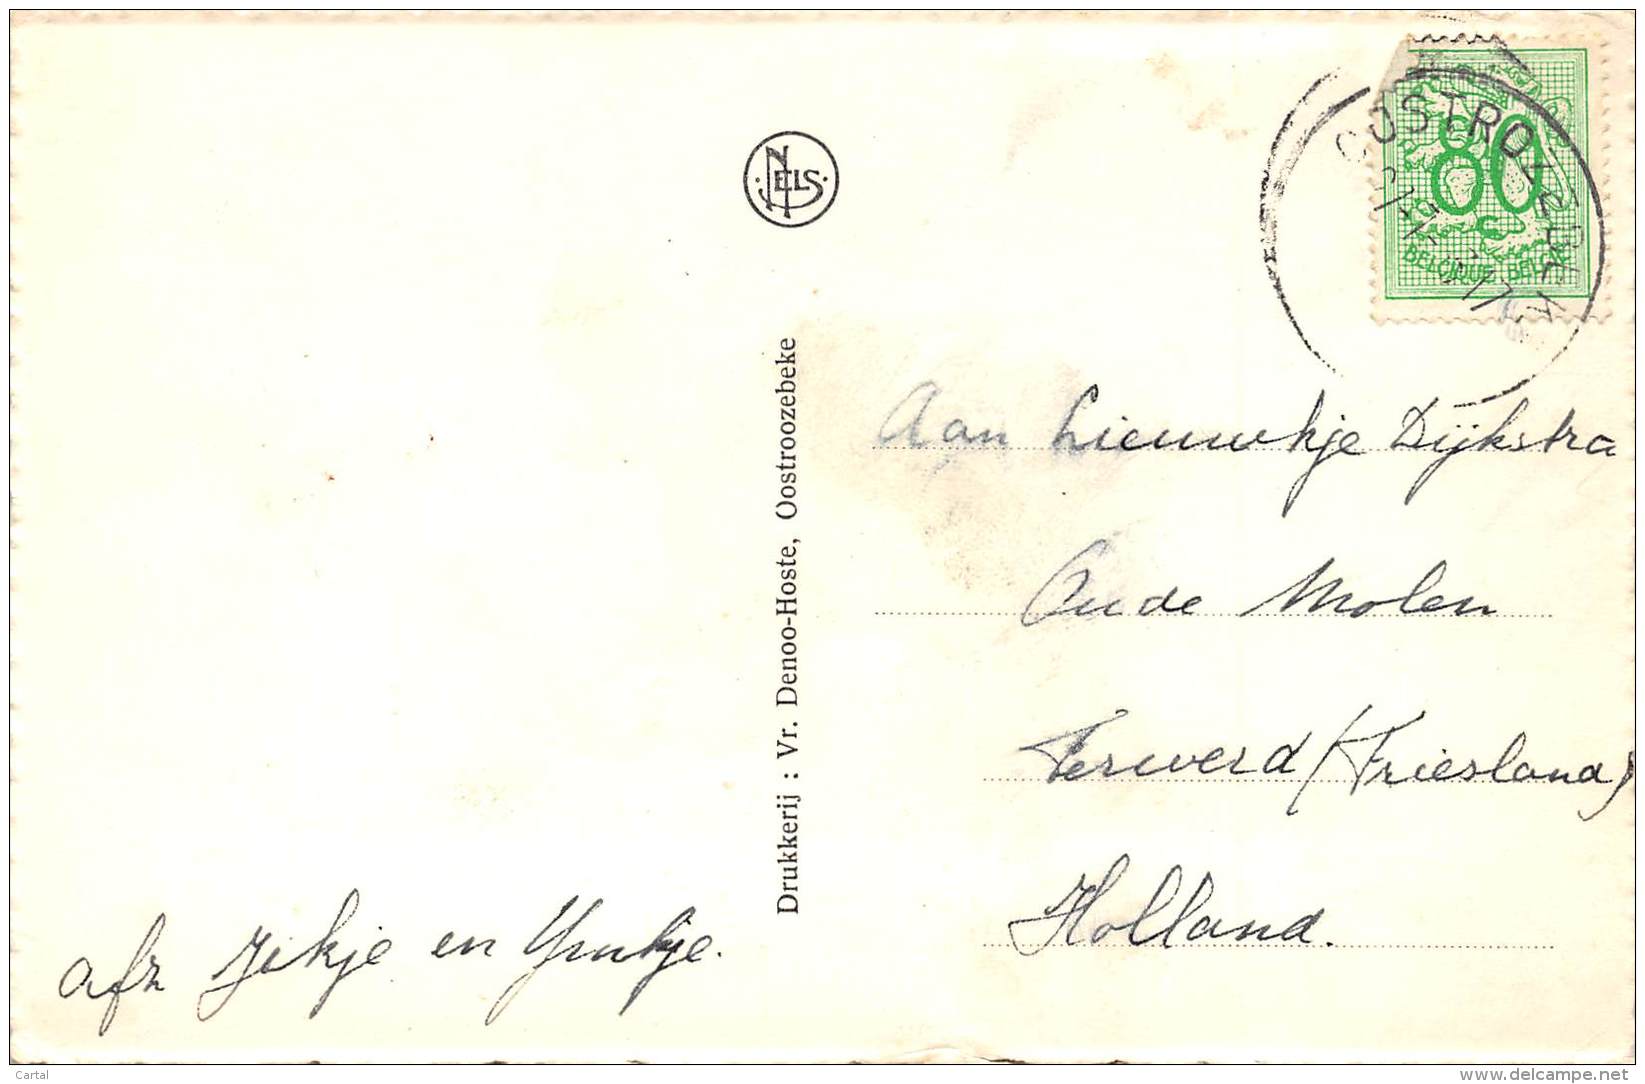 NELS
OOSTROZEBEKE
17
80 c
BELGIQUE - BELGIE
Drukkerij : Vr. Denoo-Hoste, Oostroozebeke
Aan Lieuwkje Dijkstra
Oude Molen
Ferwerd (Friesland)
Holland.
afz Jikje en Ymkje.
Cartal
delcampe.net